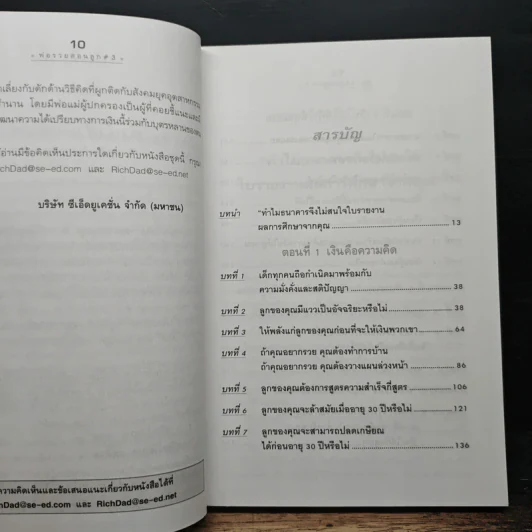 10
• พ่อรวยสอนลูก # 3 •
เลี่ยงกับดักด้านวิธีคิดที่ผูกติดกับสังคมยุคอุตสาหกรรม
โดยมีพ่อแม่ผู้ปกครองเป็นผู้ที่คอยชี้แนะและมี
ความได้เปรียบทางการเงินนี้ร่วมกับบุตรหลานของตน
อ่านมีข้อคิดเห็นประการใดเกี่ยวกับหนังสือชุดนี้ กรุณา
chDad@se-ed.com และ RichDad@se-ed.net
บริษัท ซีเอ็ดยูเคชั่น จำกัด (มหาชน)
ความคิดเห็นและข้อเสนอแนะเกี่ยวกับหนังสือได้ที่
chDad@se-ed.com และ RichDad@se-ed.net
สารบัญ
บทนำ "ทำไมธนาคารจึงไม่สนใจใบรายงาน
ผลการศึกษาจากคุณ 13
ตอนที่ 1 เงินคือความคิด
บทที่ 1 เด็กทุกคนถือกำเนิดมาพร้อมกับ
ความมั่งคั่งและสติปัญญา 38
บทที่ 2 ลูกของคุณมีแววเป็นอัจฉริยะหรือไม่ 38
บทที่ 3 ให้พลังแก่ลูกของคุณก่อนที่จะให้เงินพวกเขา 64
บทที่ 4 ถ้าคุณอยากรวย คุณต้องทำการบ้าน
ถ้าคุณอยากรวย คุณต้องวางแผนล่วงหน้า 86
บทที่ 5 ลูกของคุณต้องการสูตรความสำเร็จกี่สูตร 106
บทที่ 6 ลูกของคุณจะล้าสมัยเมื่ออายุ 30 ปีหรือไม่ 121
บทที่ 7 ลูกของคุณจะสามารถปลดเกษียณ
ได้ก่อนอายุ 30 ปีหรือไม่ 136